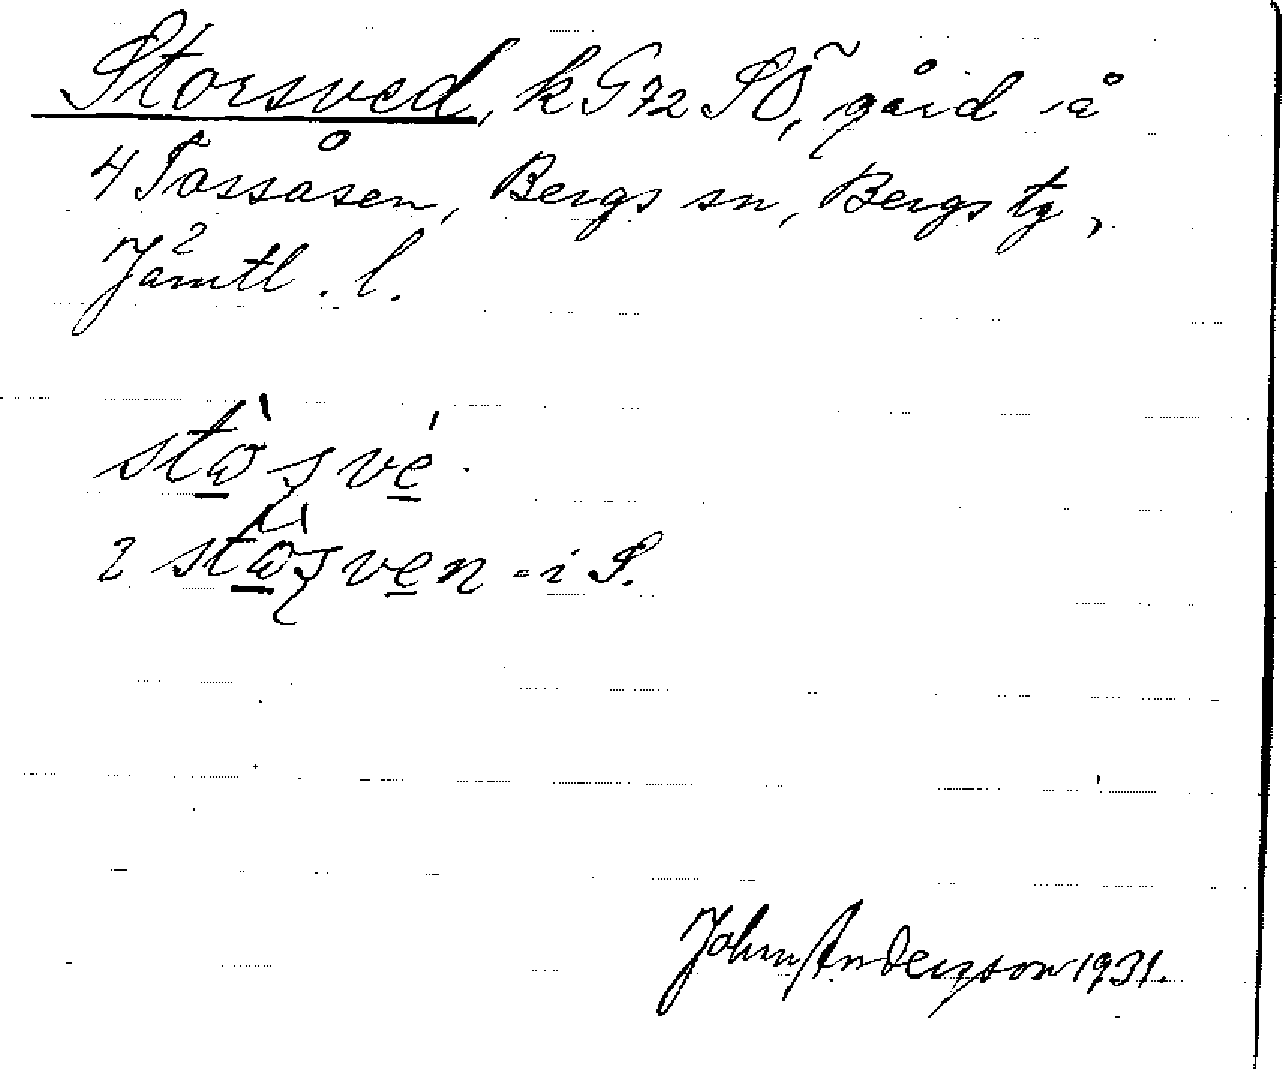 Storsved, k G72 SÖ, gård å
4 Tossåsen, Bergs sn, Bergs tg,
Jämtl. l.
stὼ̠ʂvé̠
2 stὼ̠ʂve̠n - i S.
John Anderson 1931.